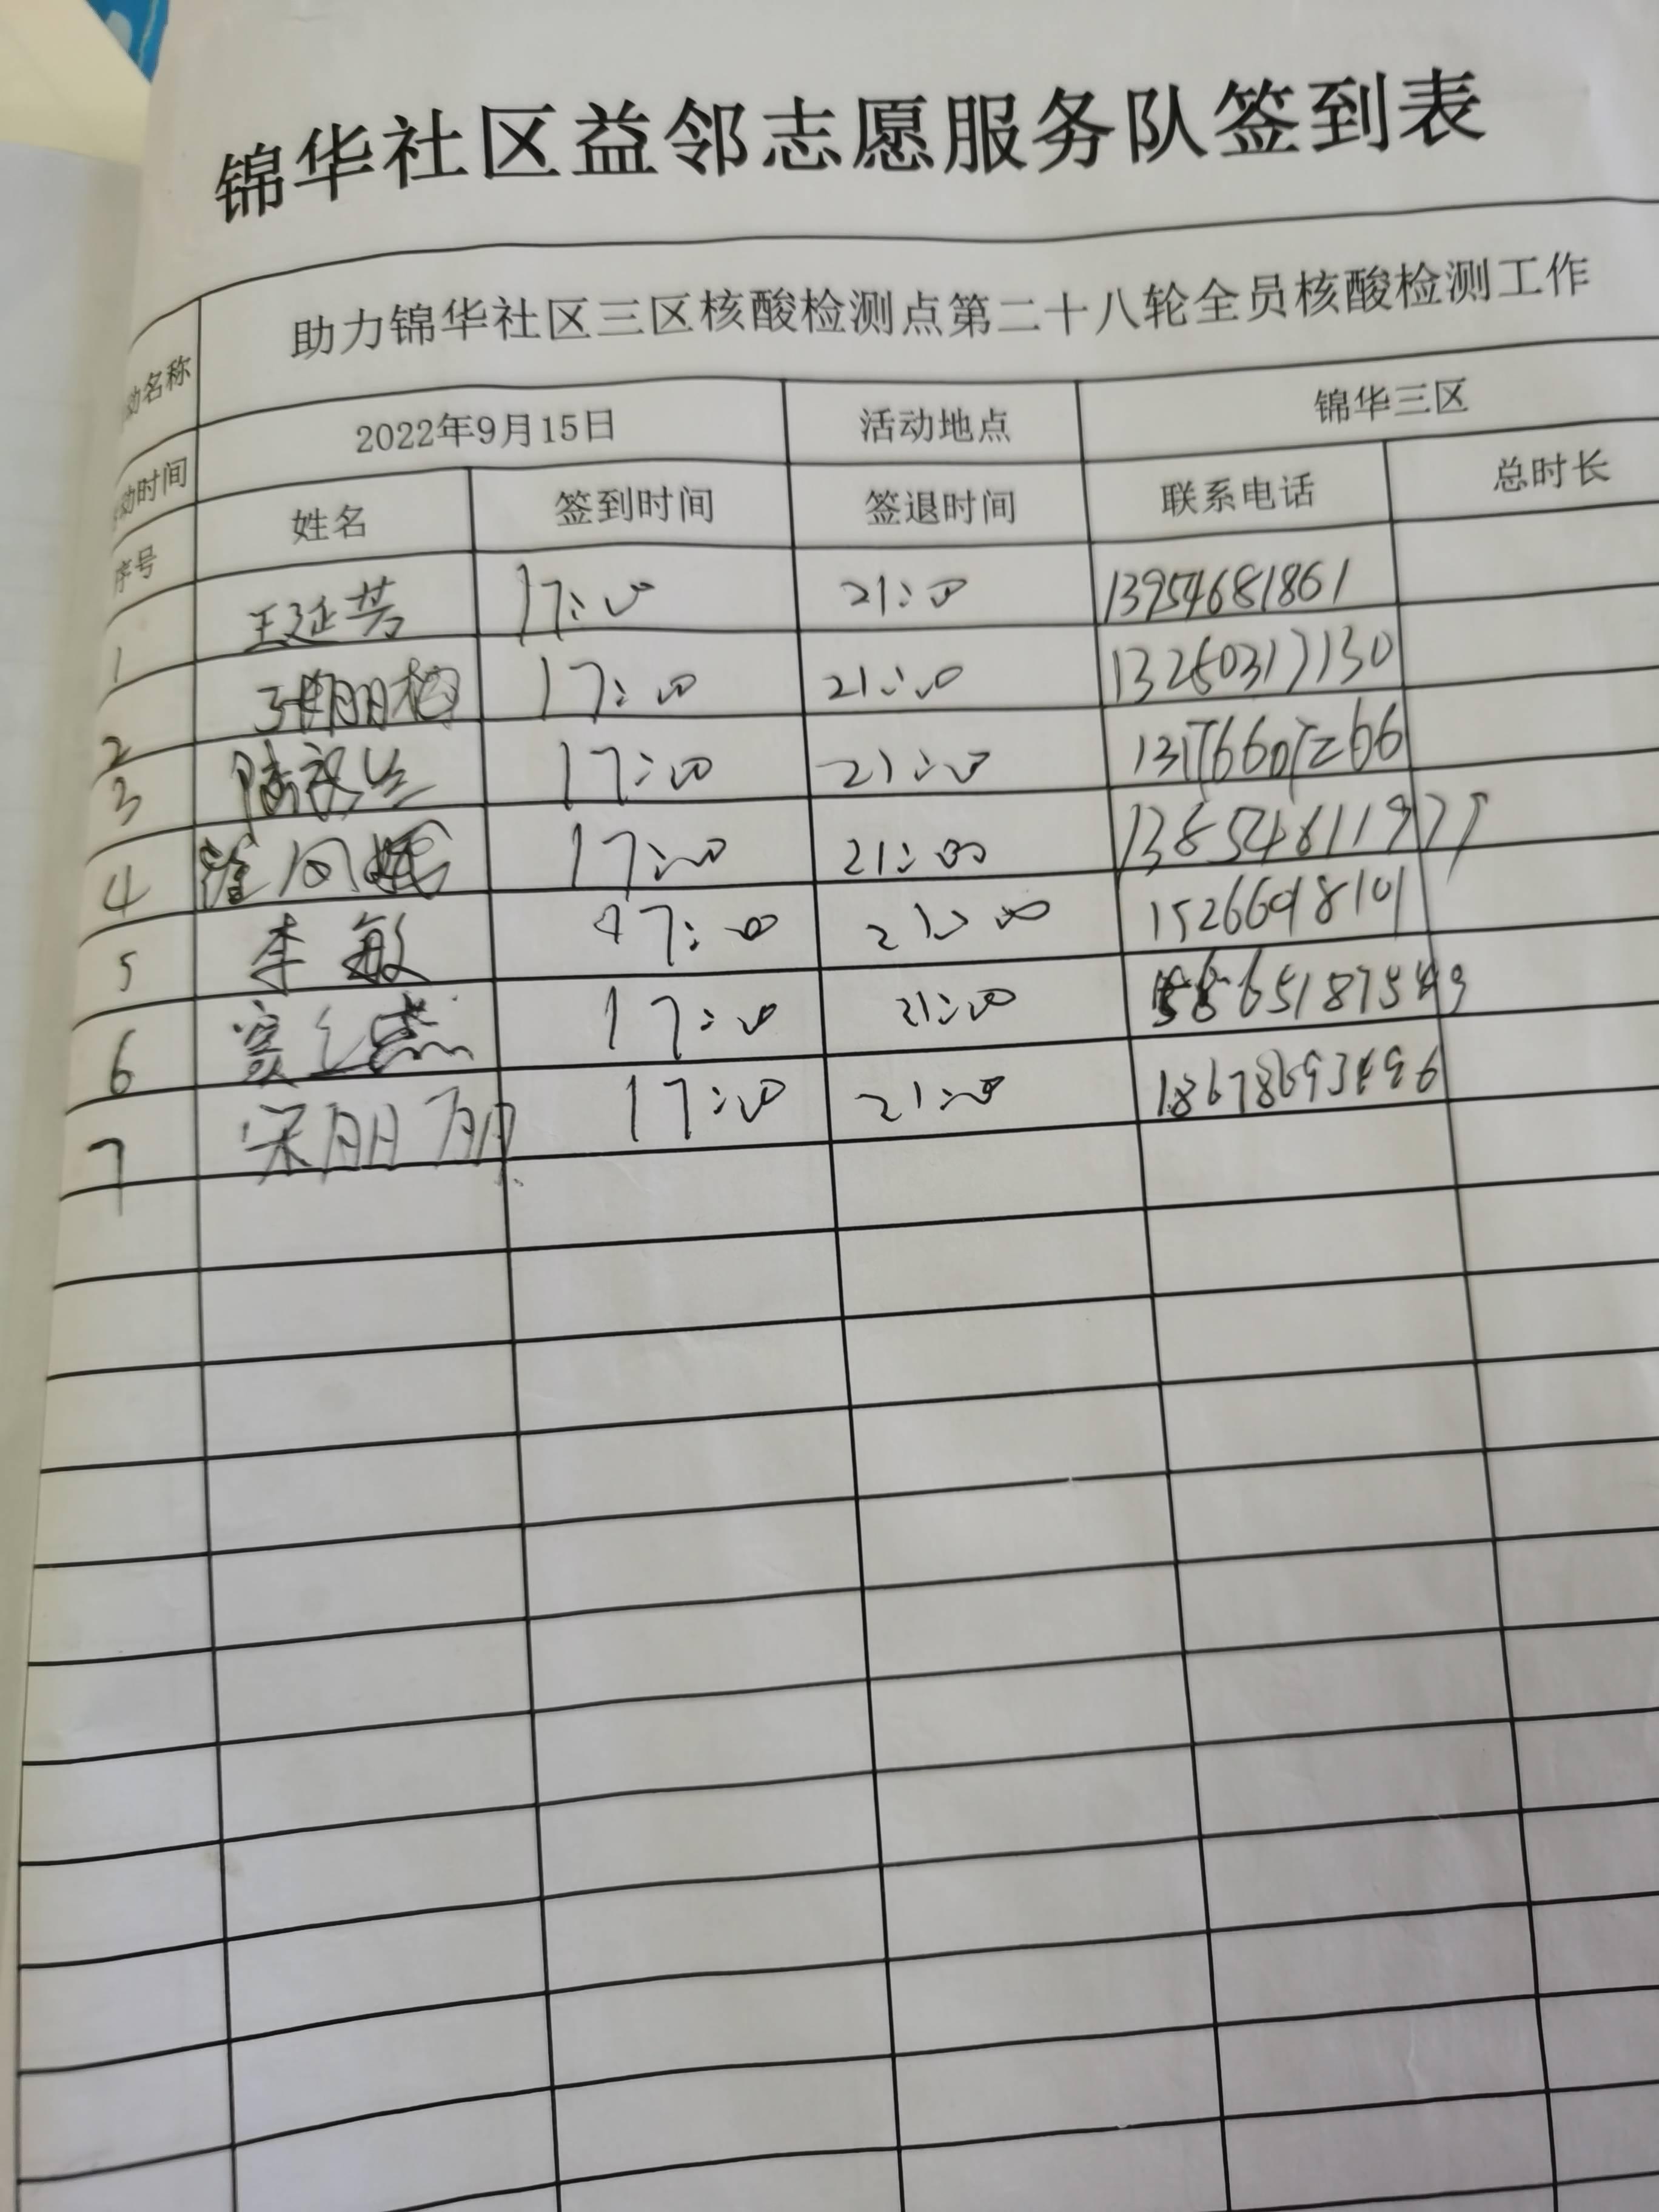 锦华社区益邻志愿服务队签到表
动名称 助力锦华社区三区核酸检测点第二十八轮全员核酸检测工作
动时间 2022年9月15日 活动地点 锦华三区
序号 姓名 签到时间 签退时间 联系电话 总时长
1 王延芳 17:00 21:00 13954681861
2 17:00 21:00 13250317130
3 17:00 21:00
4 17:00 21:00 13854611977
5 李敏 17:00 21:00
6 17:00 21:00
7 宋丽丽 17:00 21:00